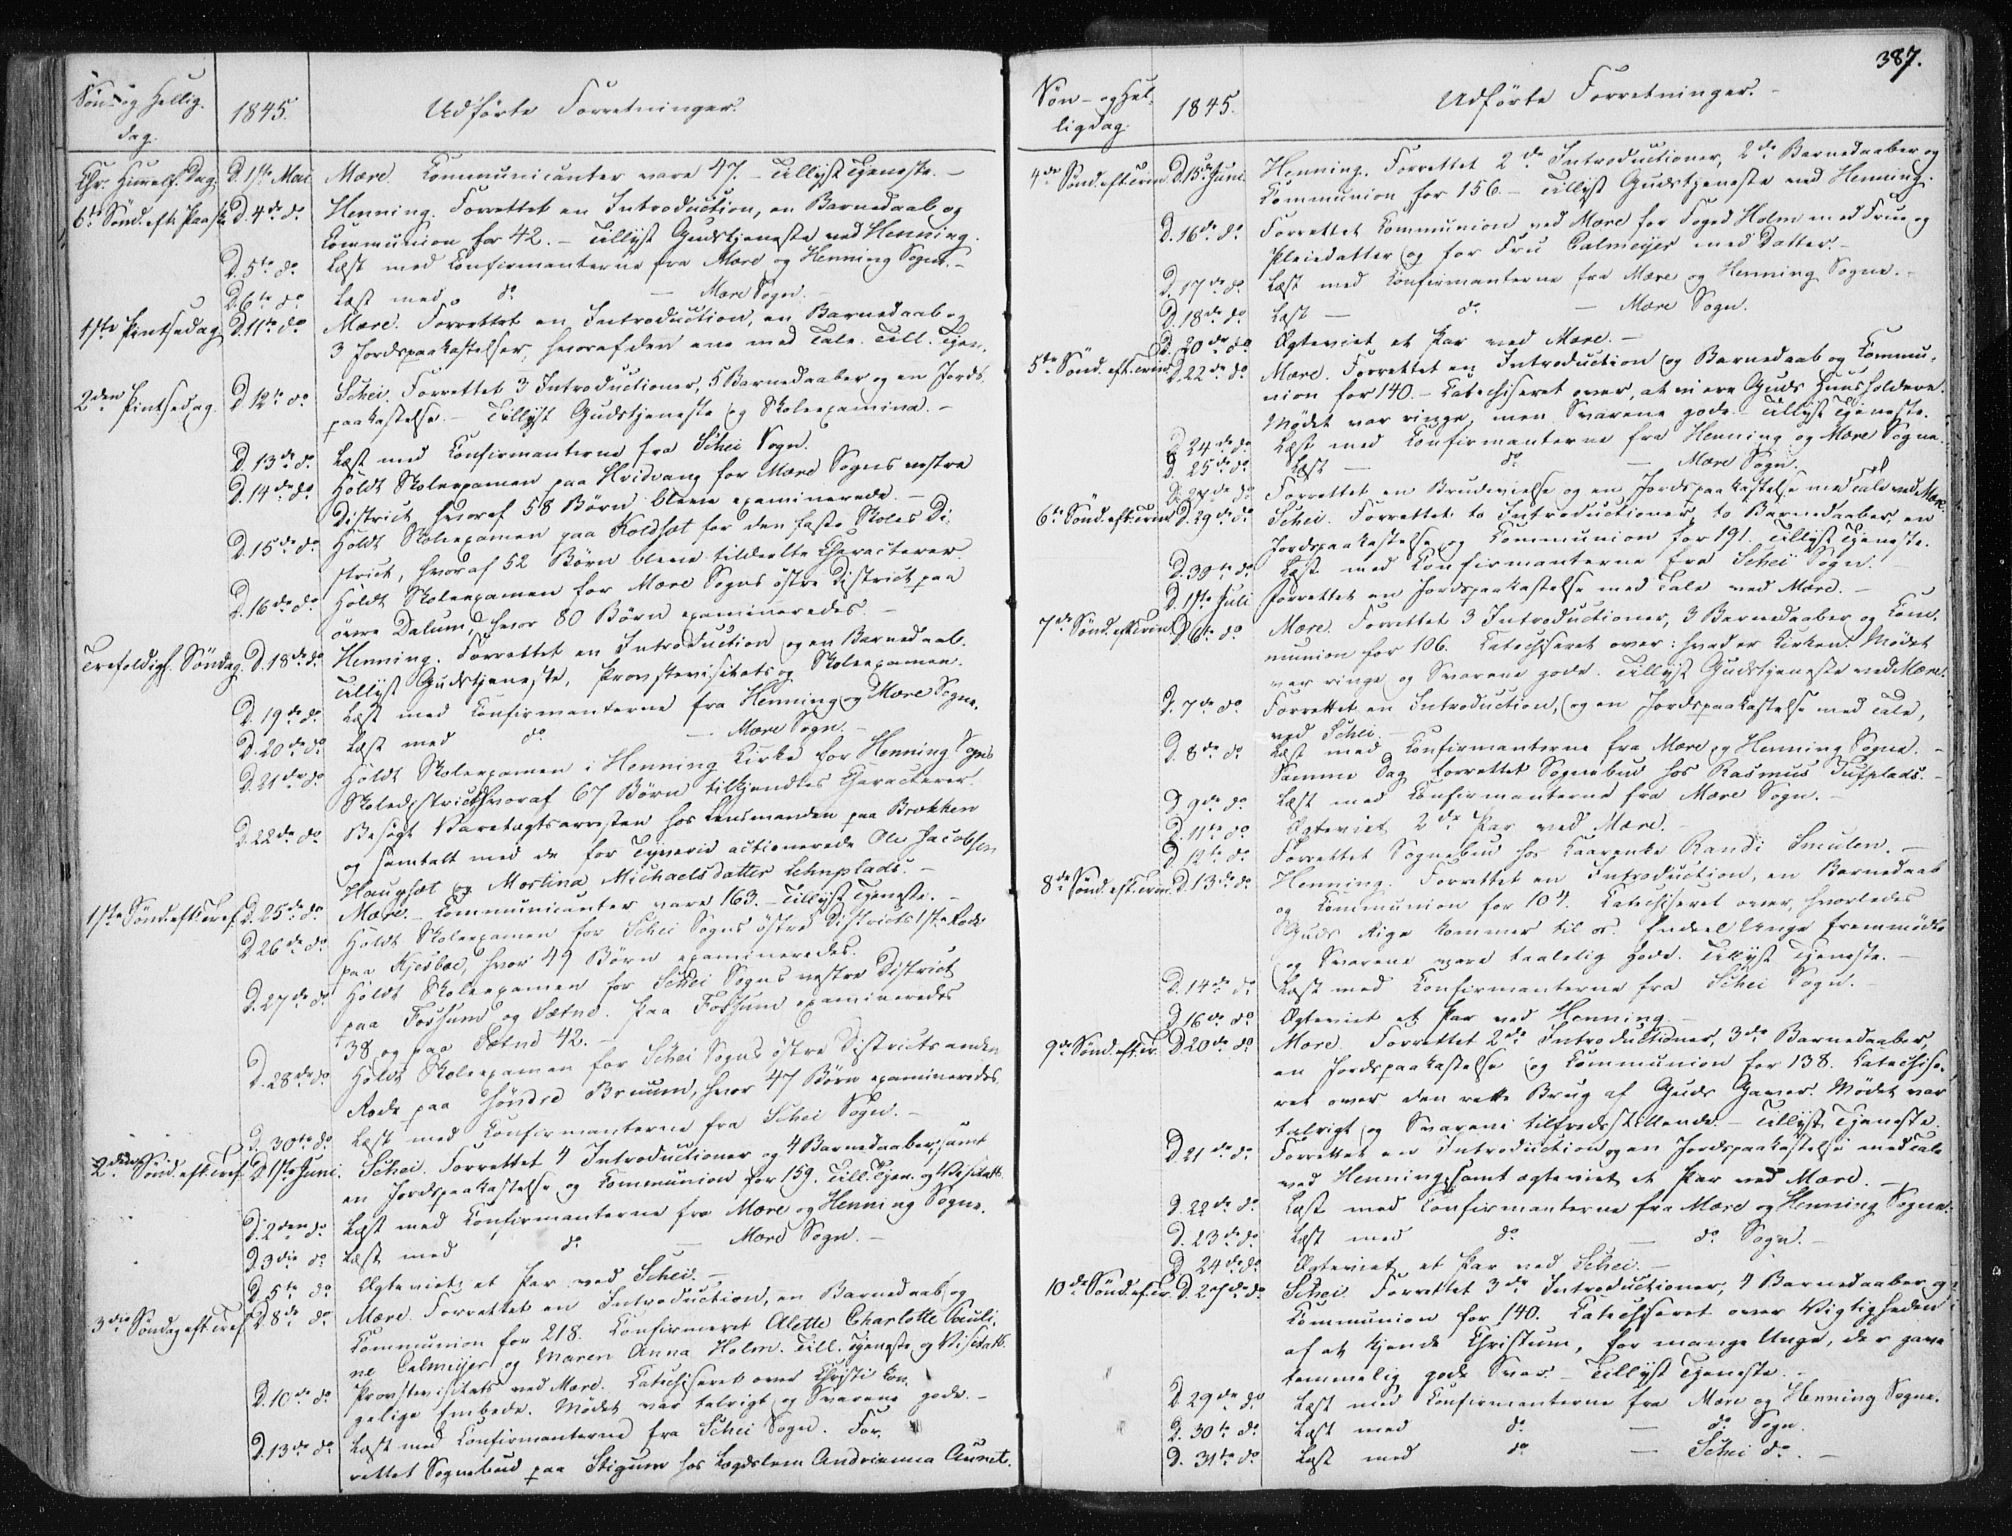 Søn- og Hellig-
dag.
1845.
Udførte Forretninger.
Chr. Himmelf. Dag. D. 1ste Mai Mære Communicanter vare 47. – Tillyst Tjeneste. –
6te Sönd. eft. Paaske D. 4de do Henning. Forrettet en Introduction, en Barnedaab og
Communion for 42. – Tillyst Gudstjeneste ved Henning.
D. 5te do Læst med Confirmanterne fra Mære og Henning Sogne. –
D. 6te do Læst med do — Mære Sogn. –
1ste Pintsedag D. 11te do Mære. Forrettet en Introduction, en Barnedaab og
3 Jordspaakastelser, hvoraf den ene med Tale. Till. Tjen.
2den Pintsedag. D. 12te do Schei. Forrettet 3 Introductioner, 5 Barnedaaber og en Jords-
paakastelse. – Tillyst Gudstjeneste og Skoleexamina. –
D. 13de do Læst med Confirmanterne fra Schei Sogn.
D. 14de do Holdt Skoleexamen paa Hvidvang for Mære Sogns vestre
District, hvoraf 58 Börn bleve examinerede. –
D. 15de do Holdt Skoleexamen paa Koldhot for den faste Skoles Di-
strict, hvoraf 52 Börn bleve tildeelte Characterer.
D. 16de do Holdt Skoleexamen for Mære Sogns östre District paa
övre Dalum, hvor 80 Börn examineredes. –
Trefoldigh. Söndag. D. 18de do Henning. Forrettet en Introduction og en Barnedaab.
Tillyst Gudstjeneste, Provstevisitats og Skoleexamen.
D. 19de do Læst med Confirmanterne fra Henning og Mære Sogne.
D. 20de do Læst med do — Mære Sogn. –
D. 21de do Holdt Skoleexamen i Henning Kirke for Henning Sogns
Skoledistrict, hvoraf 67 Börn tilkjendtes Characterer.
D. 22de do Besögt Varetægtsarresten hos Lensmanden paa Brekken
og samtalt med de for Tyverie actionerede Ole Jacobsen
Haughot og Martina Michaelsdatter Lehnplads. –
1ste Sönd. eft. Tref. D. 25de do Mære. – Communicanter vare 163. – Tillyst Tjeneste. –
D. 26de do Holdt Skoleexamen for Schei Sogns östre Districts 1ste Rode
paa Kjesboe, hvor 49 Börn examineredes.
D. 27de do Holdt Skoleexamen for Schei Sogns vestre District
paa Fossum og Sætnd. Paa Fossum examineredes
38 og paa Sætnd 42. –
D. 28de do Holdt Skoleexamen for Schei Sogns östre Districts anden
Rode paa söndre Bruum, hvor 47 Börn examineredes.
D. 30te do Læst med Confirmanterne fra Schei Sogn. –
2den Sönd. eft. Tref. D. 1ste Juni. Schei. Forrettet 4 Introductioner og 4 Barnedaaber, samt
en Jordspaakastelse og Communion for 159. Till. Tjen. og Visitats.
D. 2den do Læst med Confirmanterne fra Mære og Henning Sogne.
D. 3die do Læst med do — Mære Sogn. –
D. 5te do Ægteviet et Par ved Schei. –
3die Söndag eft. Tref. D. 8de do Mære. Forrettet en Introduction, en Barnedaab og
Communion for 218. Confirmeret Alette Charlotte Pauli-
ne Calmeijer og Maren Anna Holm. Till. Tjeneste og Visitats.
D. 10de do Provstevisitats ved Mære. Katechiseret over Christi kon-
gelige Embede. Mödet var talrigt og Svarene gode. –
D. 13de do Læst med Confirmanterne fra Schei Sogn. For-
rettet Sognebud paa Stigum hos Lægdslem Andrianna Aunet.
387.
Søn- og Hel-
ligdag.
1845.
Udførte Forretninger. –
4de Sönd. eft. Trin. D. 15de Juni Henning. Forrettet 2de Introductioner, 2de Barnedaaber og
Communion for 156. – Tillyst Gudstjeneste ved Henning.
D. 16de do Forrettet Communion ved Mære for Foged Holm med Frue og
Pleiedatter og for Fru Calmeijer med Datter. –
D. 17de do Læst med Confirmanterne fra Mære og Henning Sogne. –
D. 18de do Læst — do — Mære Sogn.
D. 20de do Ægteviet et Par ved Mære. –
5te Sönd. eft. Trin. D. 22de do Mære. Forrettet en Introduction og Barnedaab og Commu-
nion for 140. – Katechiseret over, at vi ere Guds Huusholdere.
Mödet var ringe, men Svarene gode. Tillyst Tjeneste.
D. 24de do Læst med Confirmanterne fra Henning og Mære Sogne.
D. 25de do Læst — do — Mære Sogn.
D. 27de do Forrettet en Brudevielse og en Jordspaakastelse med Tale ved Mære.
6te Sönd. eft. Trin. D. 29de do Schei. Forrettet to Introductioner, to Barnedaaber, en
Jordspaakastelse og Communion for 191. Tillyst Tjeneste.
D. 30te do Læst med Confirmanterne fra Schei Sogn. –
D. 1ste Juli Forrettet en Jordspaakastelse med Tale ved Mære. –
7de Sönd. eft. Trin. D. 6te do Mære. Forrettet 3 Introductioner, 3 Barnedaaber og Com-
munion for 106. Katechiseret over: hvad er Kirken. Mödet
var ringe og Svarene gode. Tillyst Gudstjeneste ved Mære.
D. 7de do Forrettet en Introduction, og en Jordspaakastelse med Tale,
ved Schei. –
D. 8de do Læst med Confirmanterne fra Mære og Henning Sogne. –
Samme Dag forrettet Sognebud hos Rasmus Tufplads. –
D. 9de do Læst med Confirmanterne fra Mære Sogn. –
D. 11te do Ægteviet 2de Par ved Mære. –
D. 12te do Forrettet Sognebud hos Kaarenke Randi Smulen. –
8de Sönd. eft. Trin. D. 13de do Henning. Forrettet en Introduction, en Barnedaab
og Communion for 104. Katechiseret over, hvorledes
Guds Rige kommer til os. Endeel Unge fremmödte
og Svarene vare taalelig gode. Tillyst Tjeneste. –
D. 14de do Læst med Confirmanterne fra Schei Sogn. –
D. 16de do Ægteviet et Par ved Henning. –
9de Sönd. eft. Tr. D. 20de do Mære. Forrettet 2de Introductioner, 3de Barnedaaber,
en Jordspaakastelse og Communion for 138. Katechise-
ret over den rette Brug af Guds Gaver. Mödet var
talrigt og Svarene tilfredsstillende. – Tillyst Tjeneste.
D. 21de do Forrettet en Introduction og en Jordspaakastelse med Tale
ved Henning, samt ægteviet et Par ved Mære. –
D. 22de do Læst med Confirmanterne fra Mære og Henning Sogne.
D. 23de do Læst med do — do Sogn. –
D. 24de do Ægteviet et Par ved Schei. –
10de Sönd. ef. Tr. D. 27de do Schei. Forrettet 3de Introductioner, 4 Barnedaaber og
Communion for 140. Katechiseret over Vigtigheden
af at kjende Christum, for mange Unge, der gave
temmelig gode Svar. – Tillyst Tjeneste. –
D. 29de do Læst med Confirmanterne fra Mære og Henning Sogne.
D. 30te do Læst med do — do Sogn.
D. 31te do Læst med do — Schei do. –